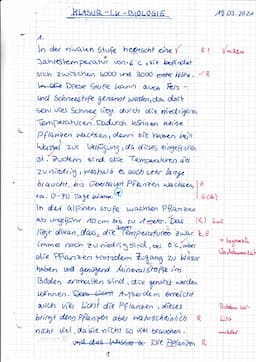 KLASUR - LK - BIOLOGIE
19.03.2021
1.
In der nivalen Stufe herrscht eine
Jahrestemperatur von -6°C, sie befindet
sich zwischen 4000 und 3000 Meter Höhe.
Diese Stufe kann auch Fels-
und Schneestufe genannt werden, da dort
sehr viel Schnee liegt durch die niedrigen
Temperaturen. Dadurch können keine
Pflanzen wachsen, denn sie haben kein
Wasser zur Verfügung, da dieses eingefroren
ist. Zudem sind die Temperaturen
zu niedrig, weshalb es auch sehr lange
braucht, bis Pflanzen wachsen,
ca. 0-70 Tage
In der alpinen Stufe wachsen Pflanzen
ab ungefähr 10 cm bis zu Das
liegt daran, dass die Temperaturen zwar
immer noch zu niedrig sind, 0°C, aber
die Pflanzen trotzdem Zugang zu Wasser
haben und genügend Mineralstoffe im
Boden enthalten sind, die genutzt werden
können. Außerdem erreicht
auch viel Licht die Pflanzen, dieses
bringt den Pflanzen aber wahrscheinlich
nicht viel, da sie nicht so viel brauchen.
Die Pflanzen
R
1